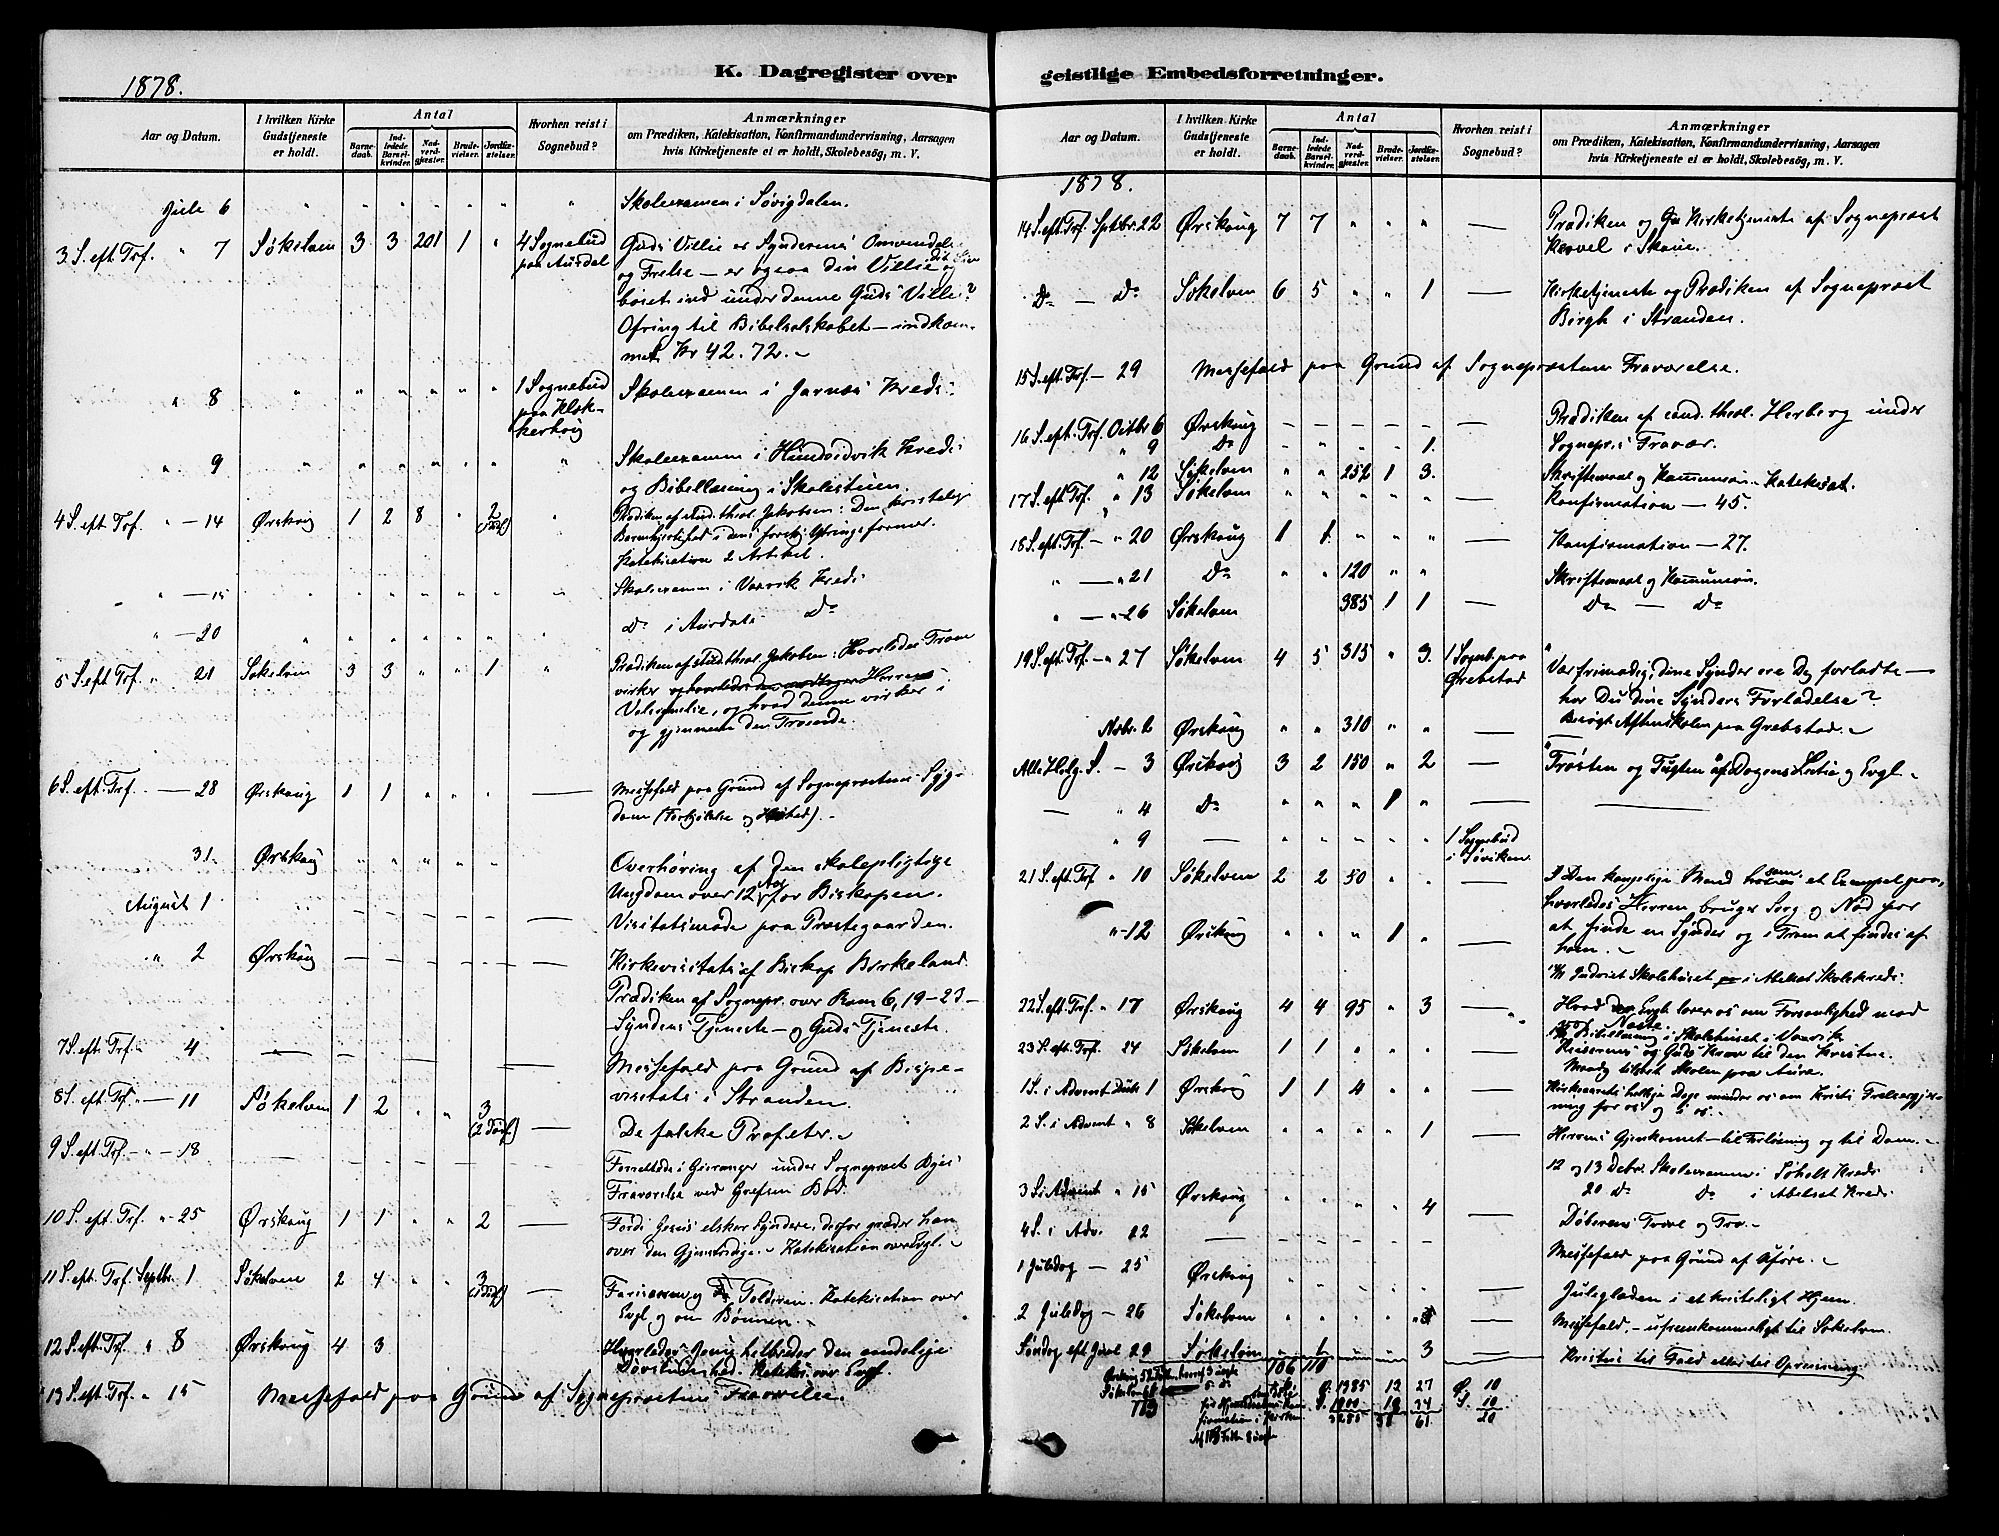 K. Dagregister over
1878.
Aar og Datum.
I hvilken Kirke Gudstjeneste er holdt.
Antal
Barnedaab.
Indledede Barselkvinder.
Nadverdgjester.
Brudevielser.
Jordfæstelser.
Hvorhen reist i Sognebud?
Anmærkninger
om Prædiken, Katekisation, Konfirmandundervisning, Aarsagen
hvis Kirketjeneste ei er holdt, Skolebesög, m. V.
Jule 6 " " " " " " " Skoleexamen i Søvigdalen.
3 S. eft. Trf. " 7 Søkelven 3 3 201 1 " 4 Sognebud Guds Villie er Synderens Omvendelse
paa Aurdal og Frelse – er ogsaa din Villie
bøiet ind under denne Guds Villie?
Ofring til Bibelselskabet – indkom-
met Kr 42.72. –
" 8 " " " " " " 1 Sognebud Skoleexamen i Jarnæs Kreds.
paa Klok-
kerhoug
" 9 " " " " " " " Skoleexamen i Hundeidvik Kreds
og Bibellæsning i Skolestuen.
4 S. eft Trf. " – 14 Ørskoug 1 2 8 " 2 " Prædiken af stud. theol. Jakobsen: Den kristelige
Barmhjertighed i dens forskj. Ytringsformer.
Katekisation 2 Artikel.
" – 15 " " " " " " " Skoleexamen i Vaxvik Kreds
" – 20 " " " " " " " Do i Aurdale Do
5 S. eft Trf. " 21 Søkelven 3 3 " " 1 " Prædiken af stud. theol. Jakobsen: Hvorledes Troen
virker
Velsignelse, og hvad denne virker i
og gjennem den Troende.
6 S. eft. Trf. – 28 Ørskoug 1 1 " " " — Messefald paa Grund af Sognepræstens Syg-
dom (Forkjølelse og Hæshed). –
31. Ørskoug " " " " " Overhøring af den skolepligtige
Ungdom over 12 Aar for Biskopen.
August 1 – – – – – — Visitatsmøde paa Præstegaarden.
" 2 Ørskoug – – – – – — Kirkevisitats af Biskop Birkeland.
Prædiken af Sognepr. over Rom 6, 19–23 –
Syndens Tjeneste – og Guds Tjeneste.
7 S. eft. Trf. " 4 — – – – — Messefald paa Grund af Bispe-
visitats i Stranden.
8 S. eft Trf. " – 11 Søkelven 1 2 " " 3 — De falske Profeter. –
9 S. eft. Trf. – " – 18 – – – – – — Forrettede i Geiranger under Sognepræst
Fraværelse ved Grefsen Bad.
10 S. eft. Trf. " 25 Ørskoug 1 1 " " 2 — Fordi Jesus elsker Syndere, derfor græder han
over den Gjenstridige. – Katekisation over Evgl. –
11 S. eft. Trf. Septbr. 1 Søkelven 2 4 " " 3 — Farisæeren og Tolderen. Katekisation over
Evgl og om Bønnen. –
12 S. eft Trf. " 8 Ørskoug 4 3 Hvorledes Jesus helbreder den aandelige
Døvstumhed. Katekis. over Evgl.
13 S. eft Trf. " 15 Messefald paa Grund af Sognepræstens Fraværelse.
geistlige Embedsforretninger.
Aar og Datum.
I hvilken Kirke Gudstjeneste er holdt.
Antal
Barnedaab.
Indledede Barselkvinder.
Nadverdgjester.
Brudevielser.
Jordfæstelser.
Hvorhen reist i Sognebud?
Anmærkninger
om Prædiken, Katekisation, Konfirmandundervisning, Aarsagen
hvis Kirketjeneste ei er holdt, Skolebesög, m. V.
1878.
14 S. eft. Trf. Sptbr. 22 Ørskoug 7 7 " " " — Prædiken og Kirketjeneste af Sognepræst
i Skoue.
Do — Do Søkelven 6 5 " " 1 — Kirketjeneste og Prædiken af Sognepræst
Birgh i Stranden.
15 S. eft. Trf. – 29 Messefald paa Grund af Sognepræstens Fraværelse.
16 S. eft. Trf. Octbr 6 Ørskoug – – – – – — Prædiken af cand. theol. Herberg under
Sognepr.s Fravær.
" 9 Do " " " " 1.
" 12 Søkelven " " 252 1 3. Skriftemaal og Kommunion. Katekisat.
17 S. eft Trf. " 13 Søkelven " " " " " — Konfirmation — 45.
18 S. eft. Trf. – " 20 Ørskoug 1 1 " " " — Konfirmation — 27.
" — " 21 Do " " 120 " " Skriftemaal og Kommunion.
" — " 26 Søkelven 385 1 1 — Do — Do
19 S. eft Trf. – " 27 Søkelven 4 5 315 " 3. 1 Sogneb. paa Vær frimodig; dine Synder ere Dig forladte –
Grebstad har Du dine Synders Forladelse?
Besøgt Aftenskolen paa Grebstad. –
Novbr. 2 Ørskoug " " 310 " " —
Alle Helg. S. – 3 Ørskoug 3 2 150 " 2 — Trøsten og Tugten af Dagens Lectie og Evgl –
— " 4 Do " " " 1 " — —
" 9 — " " " " " 1 Sognebud
i Søviken.
21 S. eft Trf " 10 Søkelven 2 2 50 " " — I Den kongelige Mand som et Exempel paa,
hvorledes Herren bruger Sorg og Nød for
at finde en Synder og i Troen at findes af
ham. –
" – 12 Ørskoug " " " 1 " —
Indviet Skolehuset i Abelset Skolekreds.
22 S. eft Trf. " 17 Ørskoug 4 4 95 " 3 — Hvad Evgl. lærer os om Forsonlighed mod
Næste.
Bibellæsning i Skolehuset i Vaxvik
23 S. eft. Trf. 24 Søkelven 1 1 " " " — Keiserens og Guds Krav til den Kristne.
Skolen paa Aure.
1 S. i Advent Decbr 1 Ørskoug 1 1 4 " " — Kirkeaarets hellige Dage minder os om Kristi Frelsergjer-
ning for os og i os. –
2 S. i Advent " 8 Søkelven " " " " 1 — Herrens Gjenkomst – til Forløsning og til Dom. –
12 og 13 Debr. Skoleexamen i Søholt Kreds
20 Do Do i Abelset Kreds
3 S. i Advent " 15 Ørskoug " " " " 4 — Døberens Tvivl og Tro. –
4 S. i Adv. 22 — – – – – – — Messefald paa Grund af Uføre. –
1 Juledag – 25 Ørskoug " " " " " — Juleglæden i et kristeligt Hjem.
2 Juledag – 26 Søkelven " " " " — Messefald, – ufremkommeligt til Søkelven.
Søndag eft. Juul 29 Søkelven 3 — Kristus til Fald eller til Opreisning
106 110
Ø. 1385 19 27 Ø. 10
S. 1900 19 34 S. 10
3285 38 61 20
113